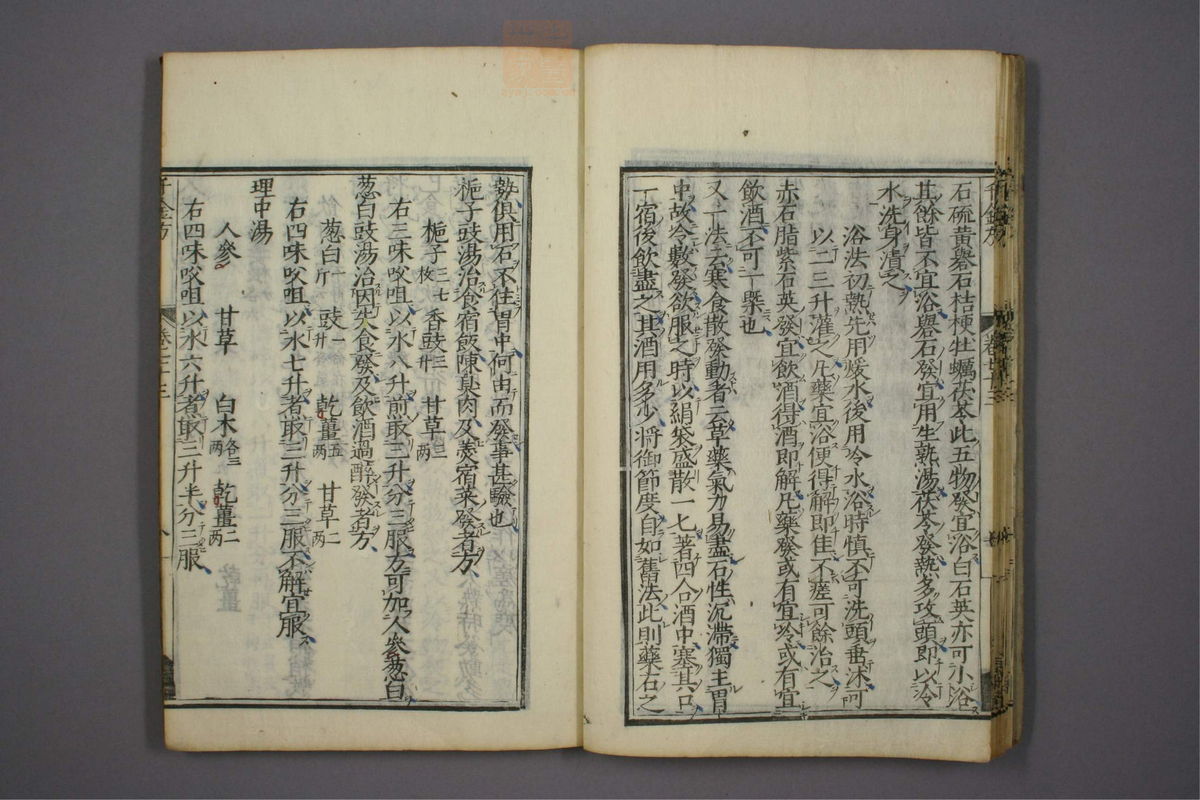 石硫黄礜石桔梗牡蠣茯苓此五物發宜浴白石英亦可小浴
其餘皆不宜浴礜石發宜用生熟湯茯苓發熱多攻頭即以冷
水洗身漬之
浴法初熱先用煖水後用冷水浴時慎不可洗頭垂沐可
以二三升灌之凡藥宜浴便得解即佳不瘥可餘治之
赤石脂紫石英發宜飲酒得酒即解凡藥發或有宜冷或有宜
飲酒不可一槩也
又一法云寒食散發動者云草藥氣力易盡石性沉滯獨主胃
中故令數發欲服之時以絹袋盛散一匕著四合酒中塞其口
一宿後飲盡之其酒用多少將御節度自如舊法此則藥石之
勢俱用石不住胃中何由而發事甚驗也
梔子豉湯治食宿飯陳臭肉及羹宿菜發者方
梔子三七枚 香豉三升 甘草三兩
右三味㕮咀以水八升煎取三升分三服亦可加人參葱白
葱白豉湯治因失食發及飲酒過醉發者方
葱白一斤 豉一升 乾薑五兩 甘草二兩
右四味㕮咀以水七升煮取三升分三服不解宜服
理中湯
人參 甘草 白朮各三兩 乾薑二兩
右四味㕮咀以水六升煮取三升半分三服
千金方